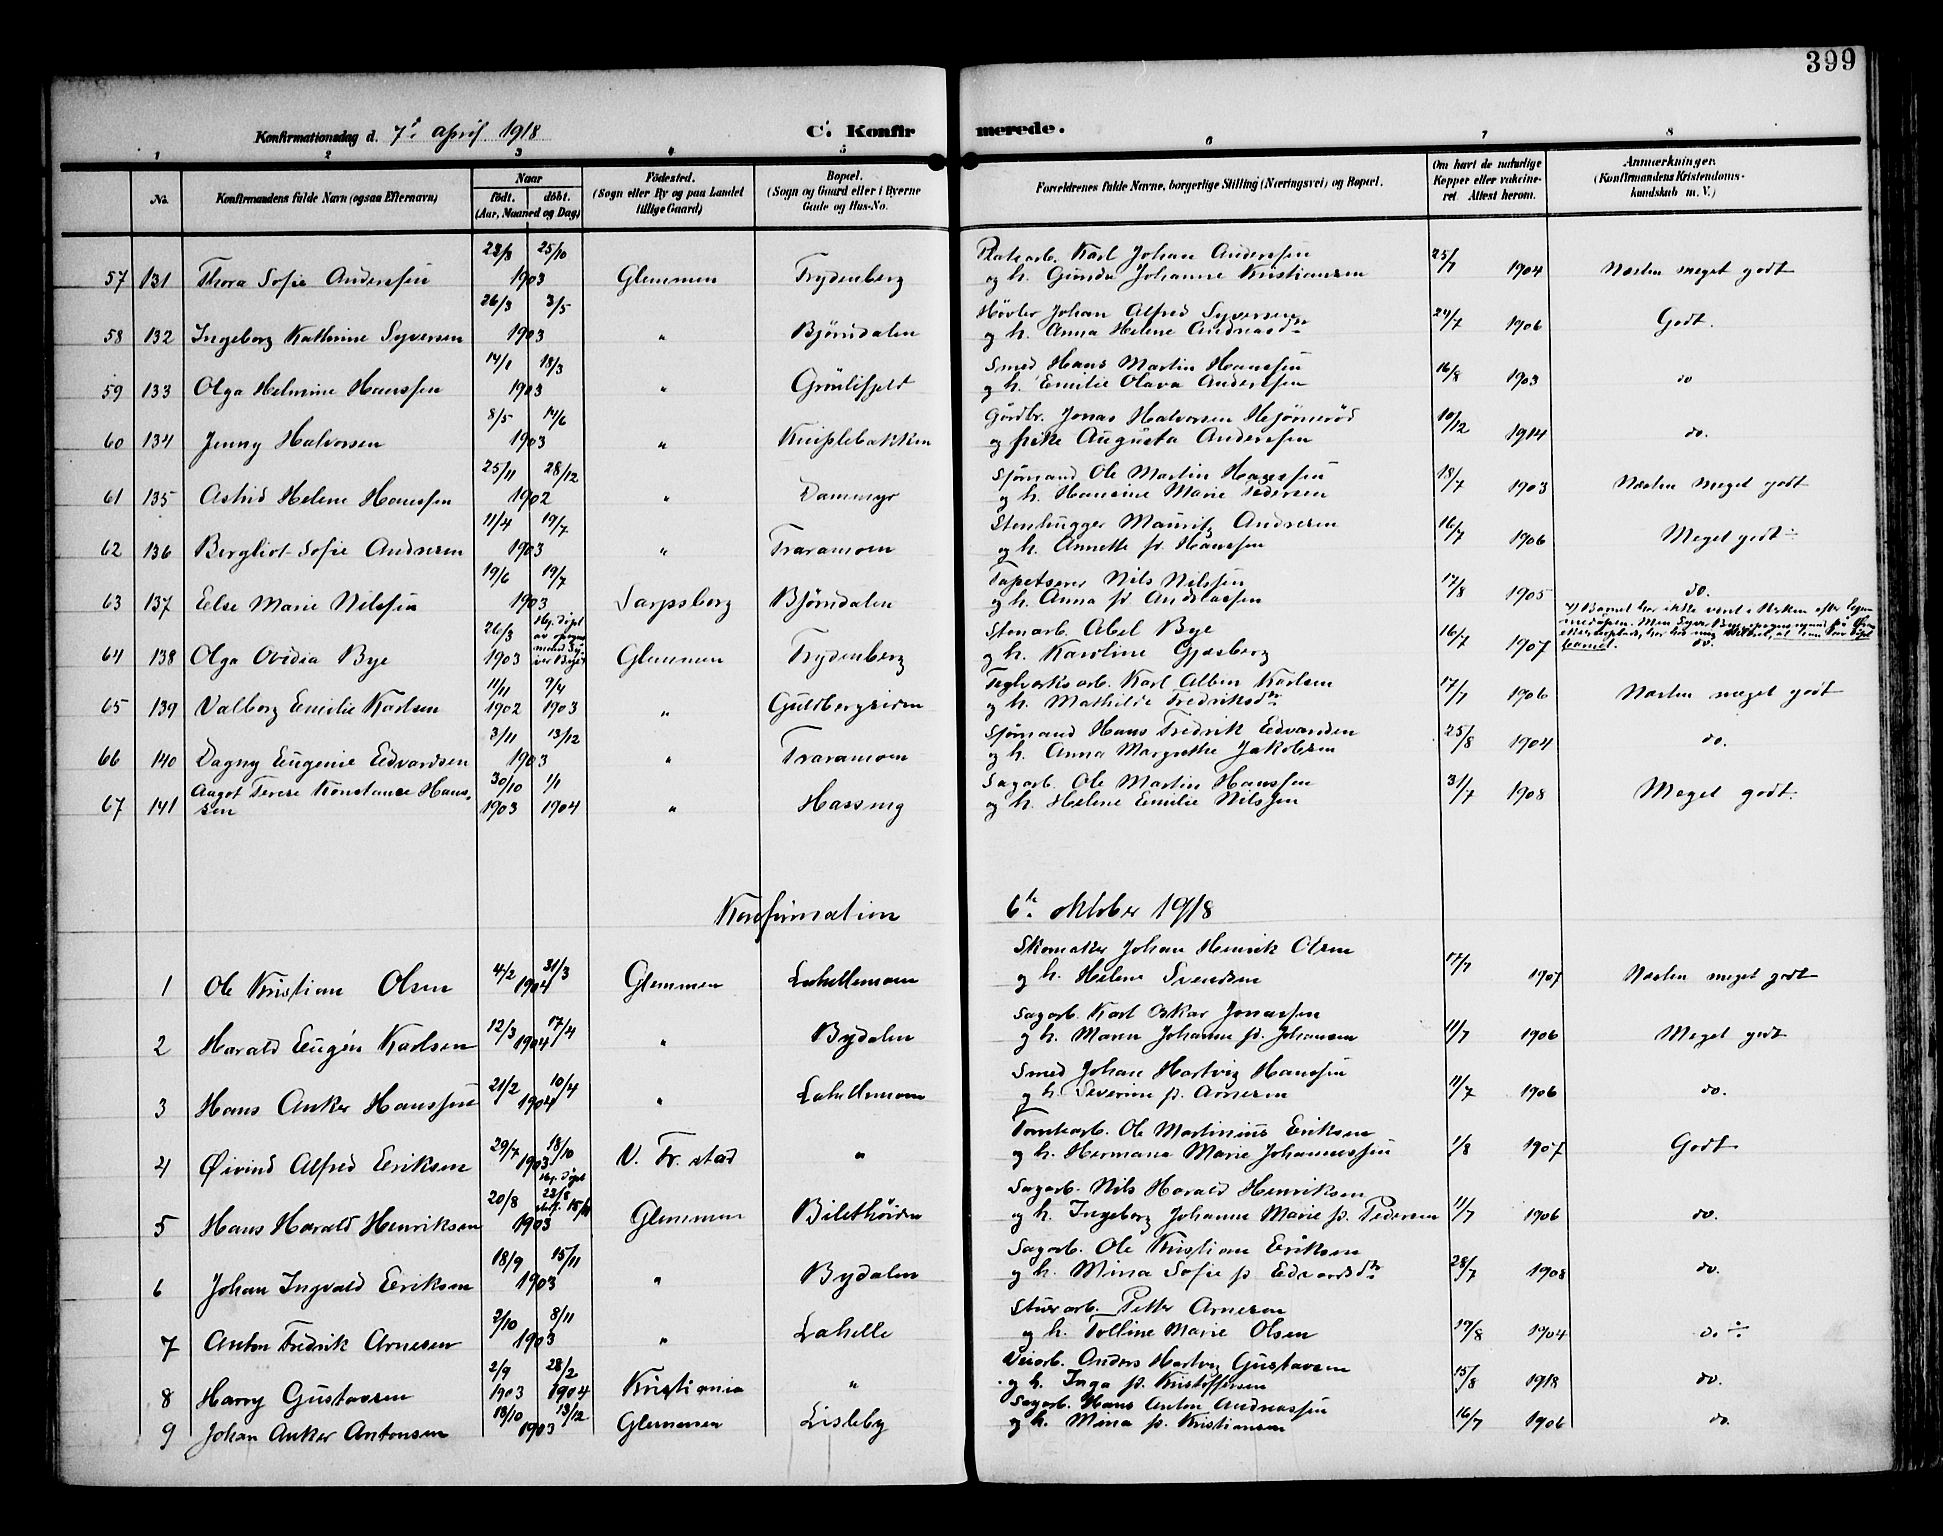 399
Konfirmationsdag d. 7de april 1918 C. Konfirmerede.
1 2 3 4 5 6 7 8
No. Konfirmandens fulde Navn (ogsaa Efternavn) Naar født. døbt. (Aar, Maaned og Dag) Fødested. (Sogn eller By og paa Landet tillige Gaard) Bopæl. (Sogn og Gaard eller i Byerne Gade og Hus-No. Forældrenes fulde Navne, borgerlige Stilling (Næringsvei) og Bopæl. Om havt de naturlige Kopper eller vaccineret Attest herom. Anmærkninger. (Konfirmandens Kristendomskundskab m. V.)
28/8 25/10 Platearb. Karl Johan Anderssen 25/7
57 131 Thora Sofie Anderssen 1903 Glemmen Frydenberg og h. Gunda Johanne Kristiansen 1904 Næsten meget godt
26/3 3/5 Høvler Johan Alfred Syversen
58 132 Ingeborg Kathrine Syversen 1903 " Bjørndalen og h. Anna Helene Andreasdtr 24/7 1906 Godt.
14/1 18/3 Smed Hans Martin Hanssen
59 133 Olga Helmine Hanssen 1903 " Grønlifjeld og h. Emilie Olava Anderssen 16/8 1903 do
8/5 14/6 Gårdbr. Jonas Halvorsen Hejørnerød
60 134 Jenny Halvorsen 1903 " Kniplebakken og pike Augusta Anderssen 10/12 1914 do.
25/11 28/12 Sjømand Ole Martin Hanssen
61 135 Astrid Helene Hanssen 1902 " Dammyr og h. Hansine Marie Pedersen 18/7 1903 Næsten meget godt
11/4 19/7 Stenhugger Mauritz Andresen
62 136 Bergliot Sofie Andresen 1903 " Traramoen og h. Annette f. Hanssen 16/7 1906 Meget godt ÷
19/6 19/7 Tapetserer Nils Nilssen
63 137 Else Marie Nilssen 1903 Sarpsborg Bjørndalen og h. Anna f. Andreassen 17/8 1905 do.
26/3 Hj. døpt av opsynsmand Syver Bye Stenarb. Abel Bye
64 138 Olga Ovidia Bye 1903 Glemmen Frydenberg og h. Karoline Gjæsberg 16/7 1907 Barnet har ikke været i Kirken efter hjemmedåpen. barnet. do.
11/11 9/4 Teglverksarb. Karl Albin Karlsen
65 139 Valborg Emilie Karlsen 1902 1903 " Guldbergsiden og h. Mathilde Fredriksdtr 17/7 1906 Næsten meget godt
3/11 13/12 Sjømand Hans Fredrik Edvardsen
66 140 Dagny Eugenie Edvardsen 1903 " Traramoen og h. Anna Margrethe Jakobsen 25/8 1904 do.
Aagot Terese Konstanse Hans- 30/10 1/1 Sagarb. Ole Martin Hanssen
67 141 sen 1903 1904 " Hassing og h. Helene Emilie Nilssen 31/7 1908 Meget godt.
Konfirmation 6te oktober 1918
4/2 31/3 Skomaker Johan Henrik Olsen
1 Ole Kristian Olsen 1904 Glemmen Lahellemoen og h. Helene Svendsen 17/7 1907 Næsten meget godt
12/3 17/4 Sagarb. Karl Oskar Jonassen
2 Harald Eugén Karlsen 1904 " Bydalen og h. Maren Johanne f. Johansen 11/7 1906 Meget godt
21/2 10/4 Smed Johan Hartvig Hanssen
3 Hans Anker Hanssen 1904 " Lahellemoen og h. Severine f. Arnesen 11/7 1906 do.
29/7 18/10 Tomtearb. Ole Martinius Eriksen
4 Øivind Alfred Eriksen 1903 V. Fr.stad " og h. Hermana Marie Johannessen 1/8 1907 Godt
20/8 Hj. døpt 22/8 Sagarb. Nils Harald Henriksen
5 Hans Harald Henriksen 1903 Glemmen Bilethöiden og h. Ingeborg Johanne Marie f. Pedersen 11/7 1906 do.
18/9 15/11 Sagarb. Ole Kristian Eriksen
6 Johan Ingvald Eriksen 1903 " Bydalen og h. Mina Sofie f. Edvardsdtr 28/7 1908 do.
2/10 8/11 Stuerarb. Petter Arnesen
7 Anton Fredrik Arnesen 1903 " Lahelle og h. Tolline Marie Olsen 17/8 1904 do ÷
2/9 28/2 Veiarb. Anders Hartvig Gustavsen
8 Harry Gustavsen 1903 1904 Kristiania " og h. Inga f. Kristoffersen 15/8 1918 do.
18/10 13/12 Sagarb. Hans Anton Andreassen
9 Johan Anker Antonsen 1903 Glemmen Lisleby og h. Mina f. Kristiansen 16/7 1906 do.